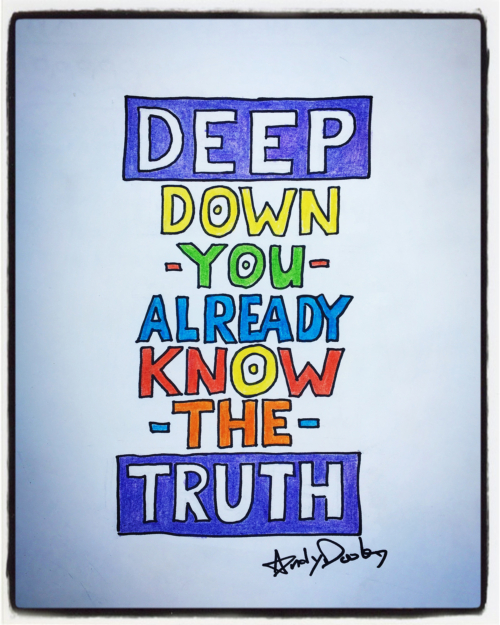 DEEP
DOWN
-YOU-
ALREADY
KNOW
-THE-
TRUTH
Andy Dooley